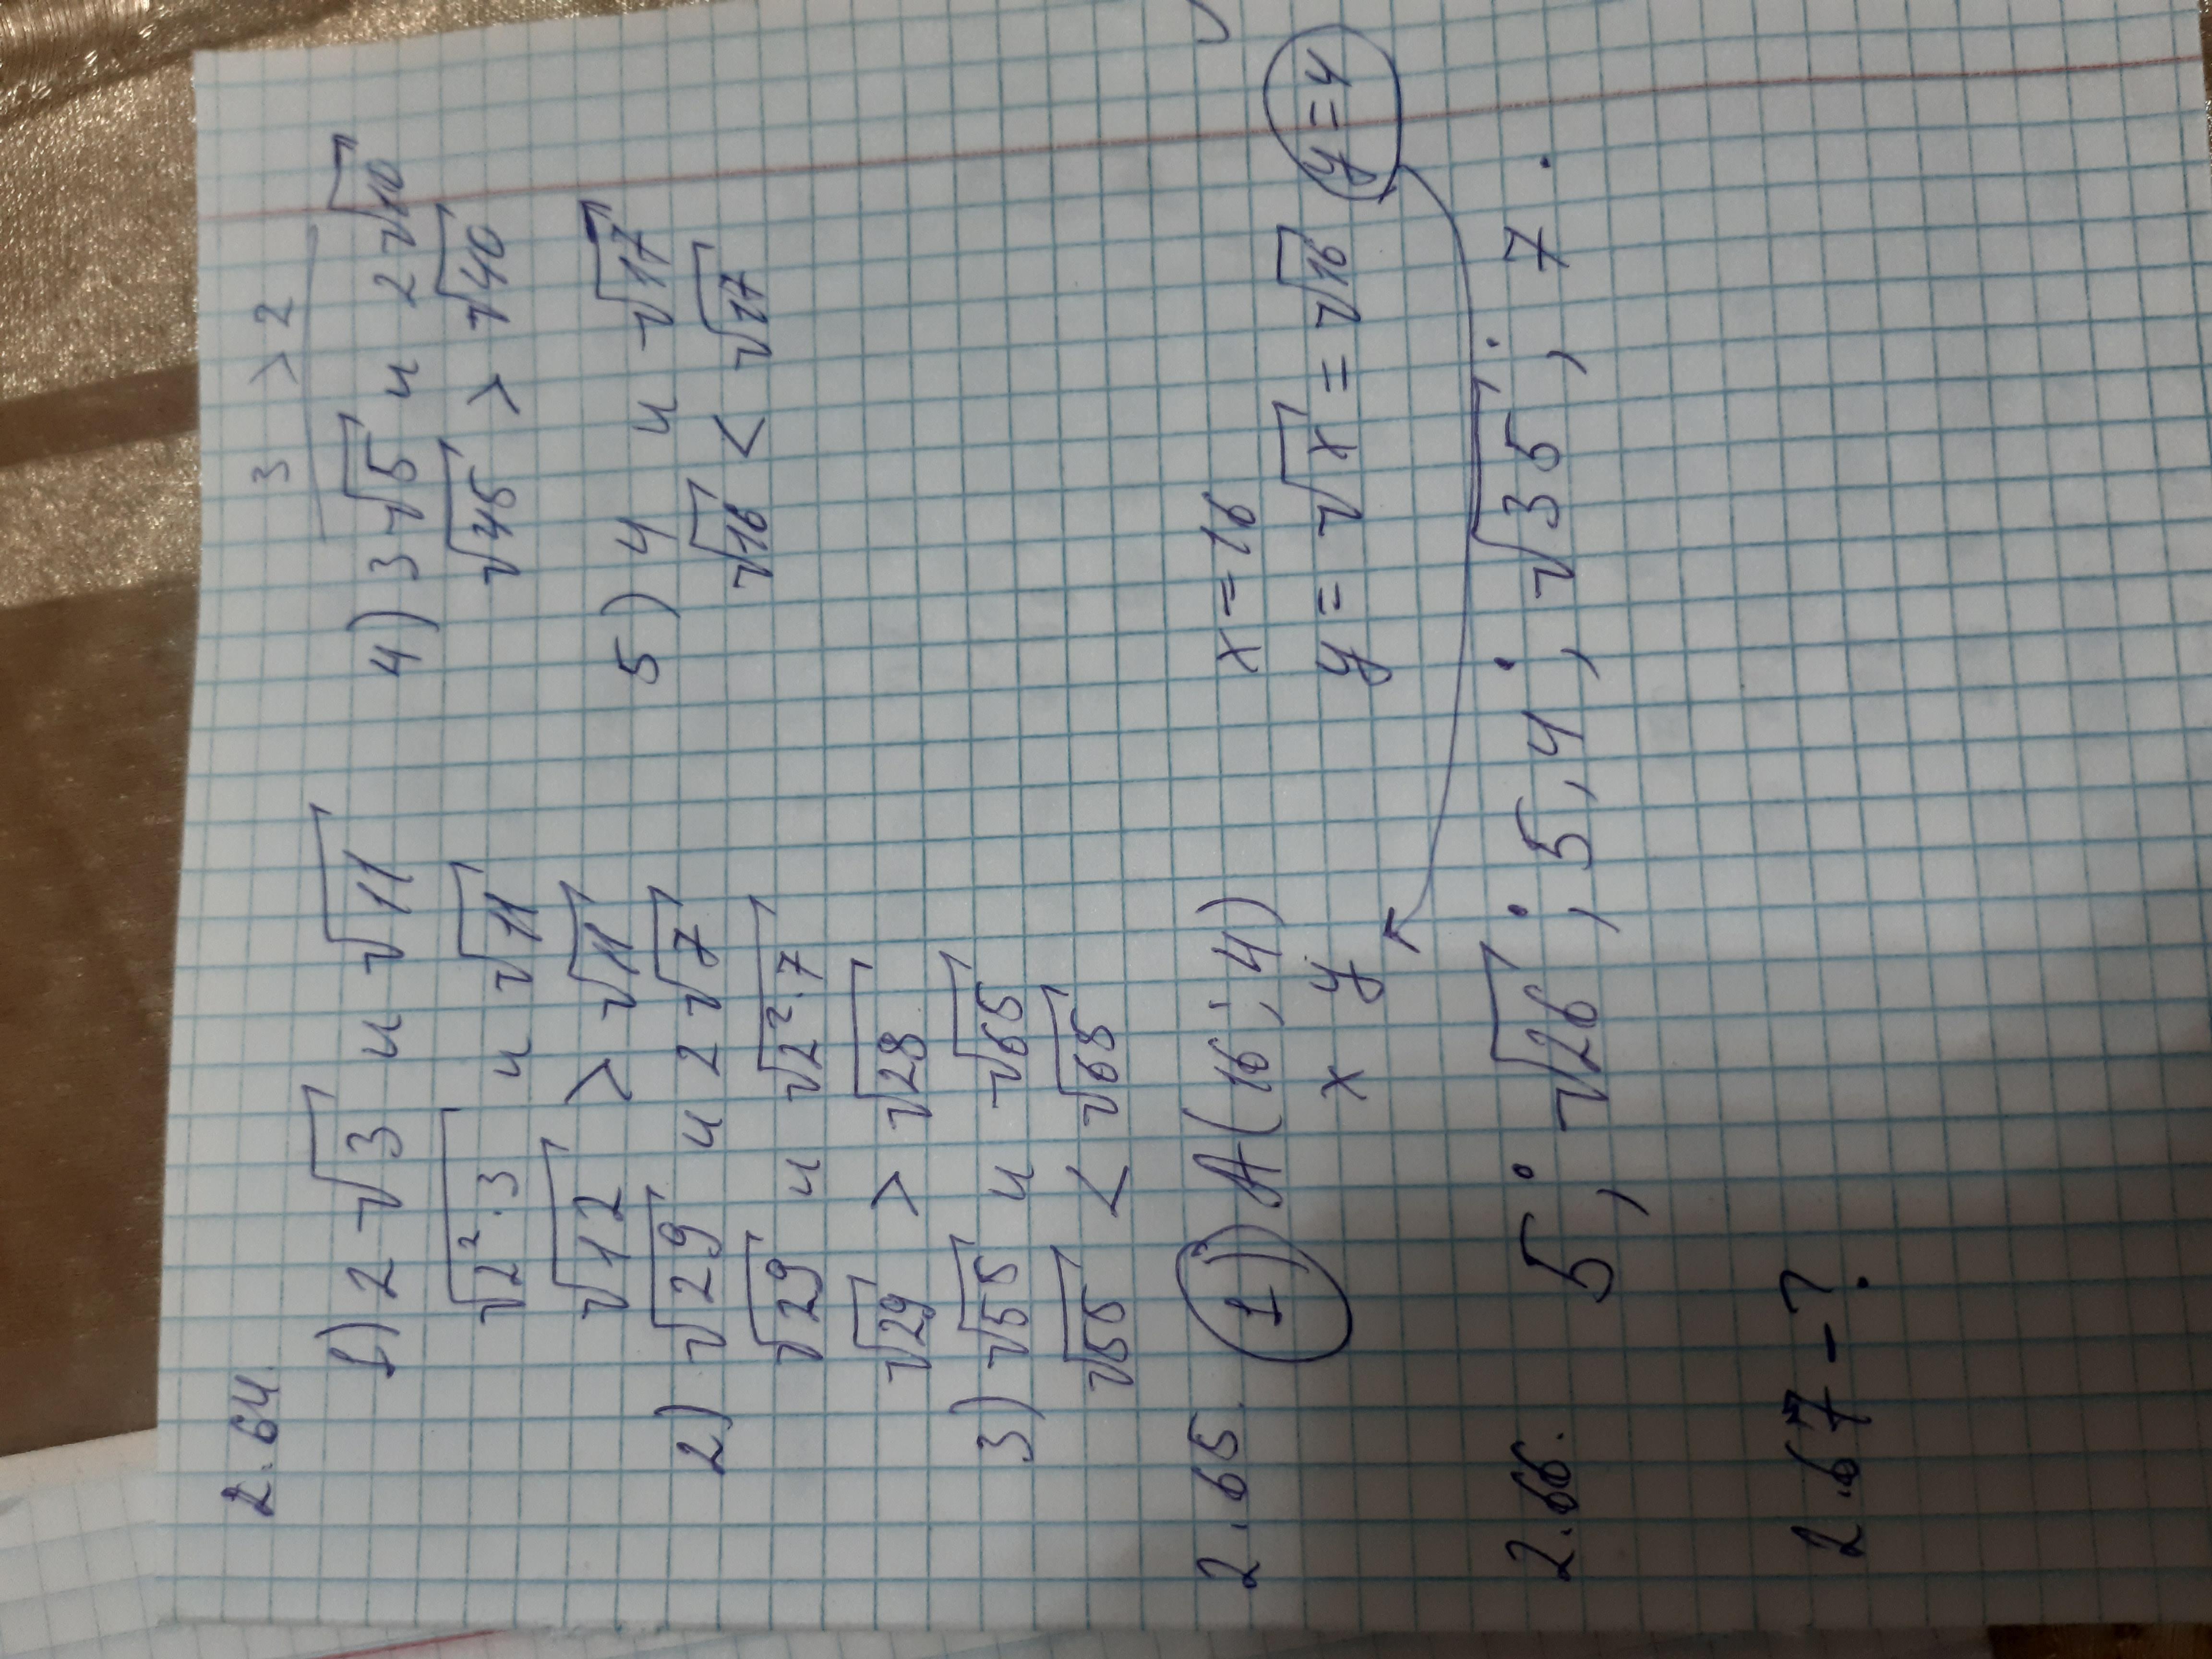 2.64.
1) 2√3 и √11
√2²·3 и √11
√12 > √11
2) √29 и 2√7
√29 и √2²·7
√29 > √28
3) √55 и √65
√55 < √65
3 > 2
4) 3√5 и 2√10
√45 > √40
5) 4 и √17
√16 < √17
2.65. 1) A(16; 4)
x y
x = 16
y = √x = √16 y = 4
2.66. 5; √26; 5,4; √35; 7.
2.67 - ?